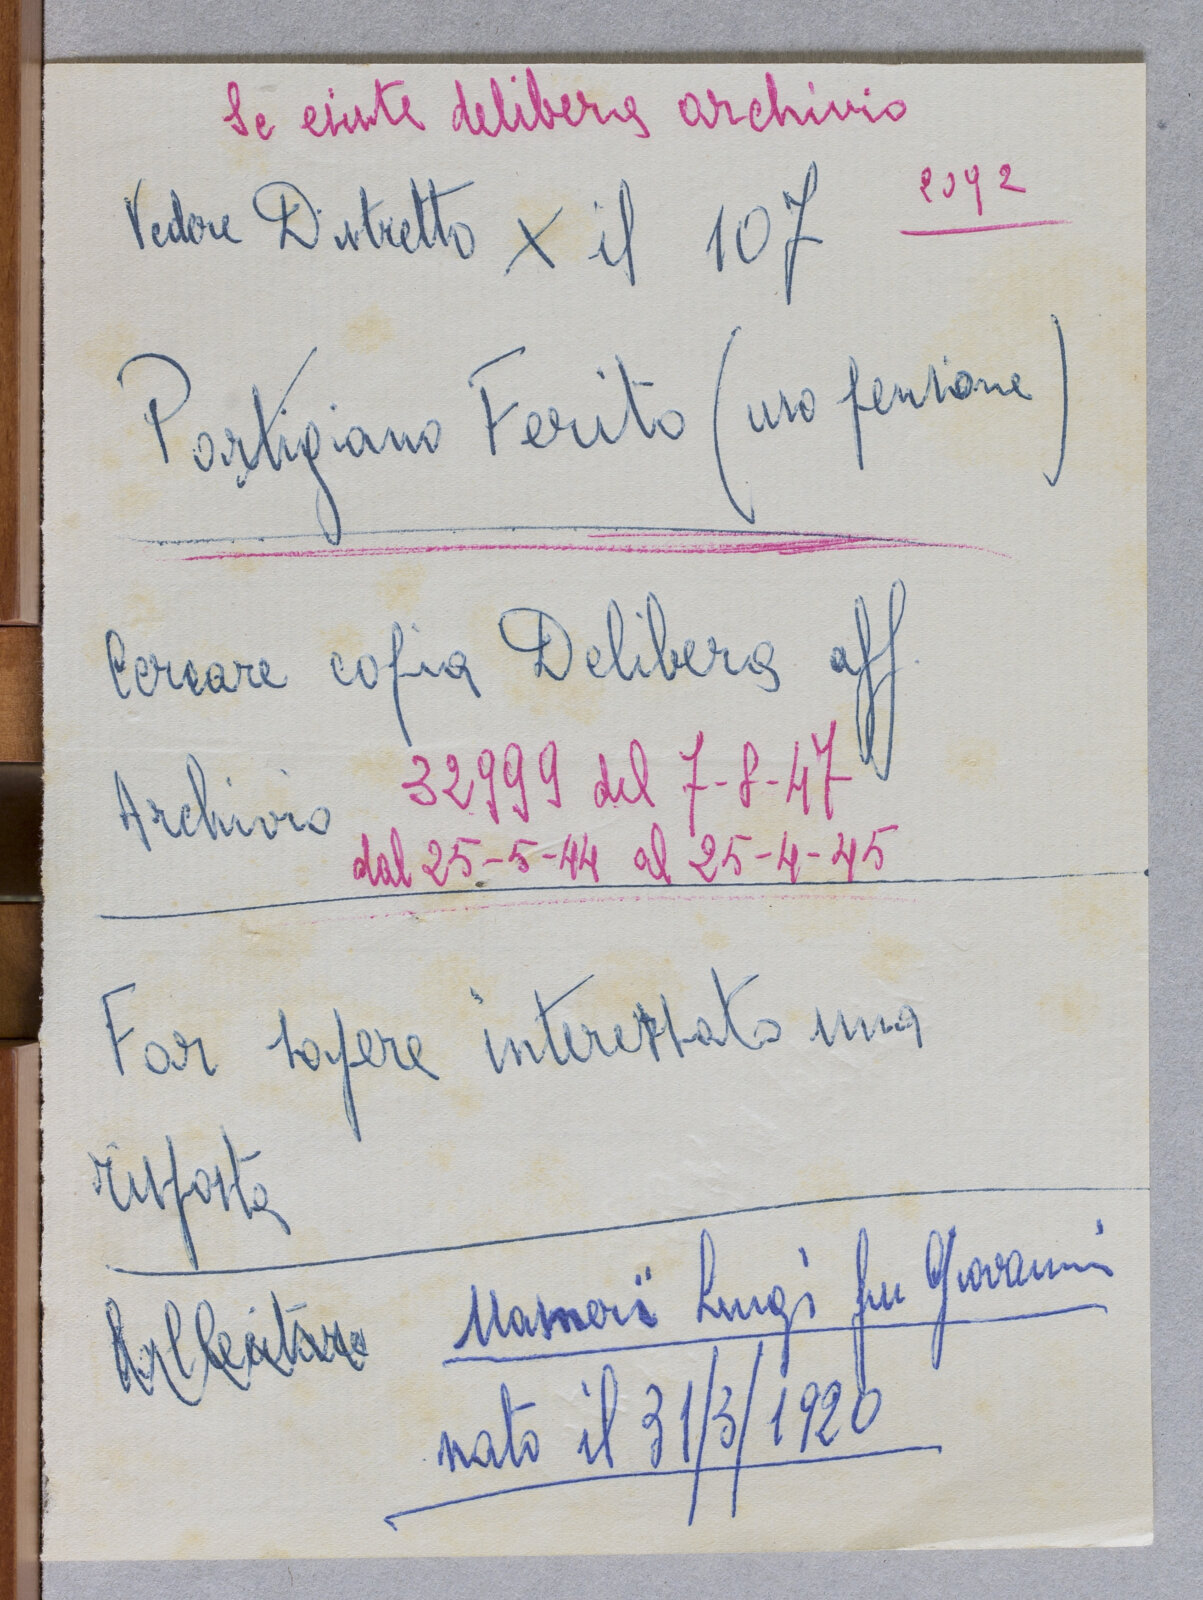 Se esiste delibera archivio
Vedere Distretto X il 107
Partigiano Ferito (uso pensione)
Cercare copia Delibera aff.
Archivio 32999 del 7-8-47
dal 25-5-44 al 25-4-45
Far sapere interessato una
risposta
Sollecitare
Luigi fu Giovanni
nato il 31/3/1920